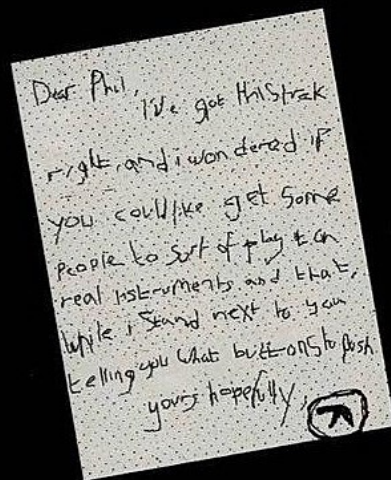 Dear Phil,
I've got this trak
right, and i wondered if
you could like get some
people to sort of play it on
real instruments and that,
while i stand next to you
telling you what buttons to push.
yours hopefully,